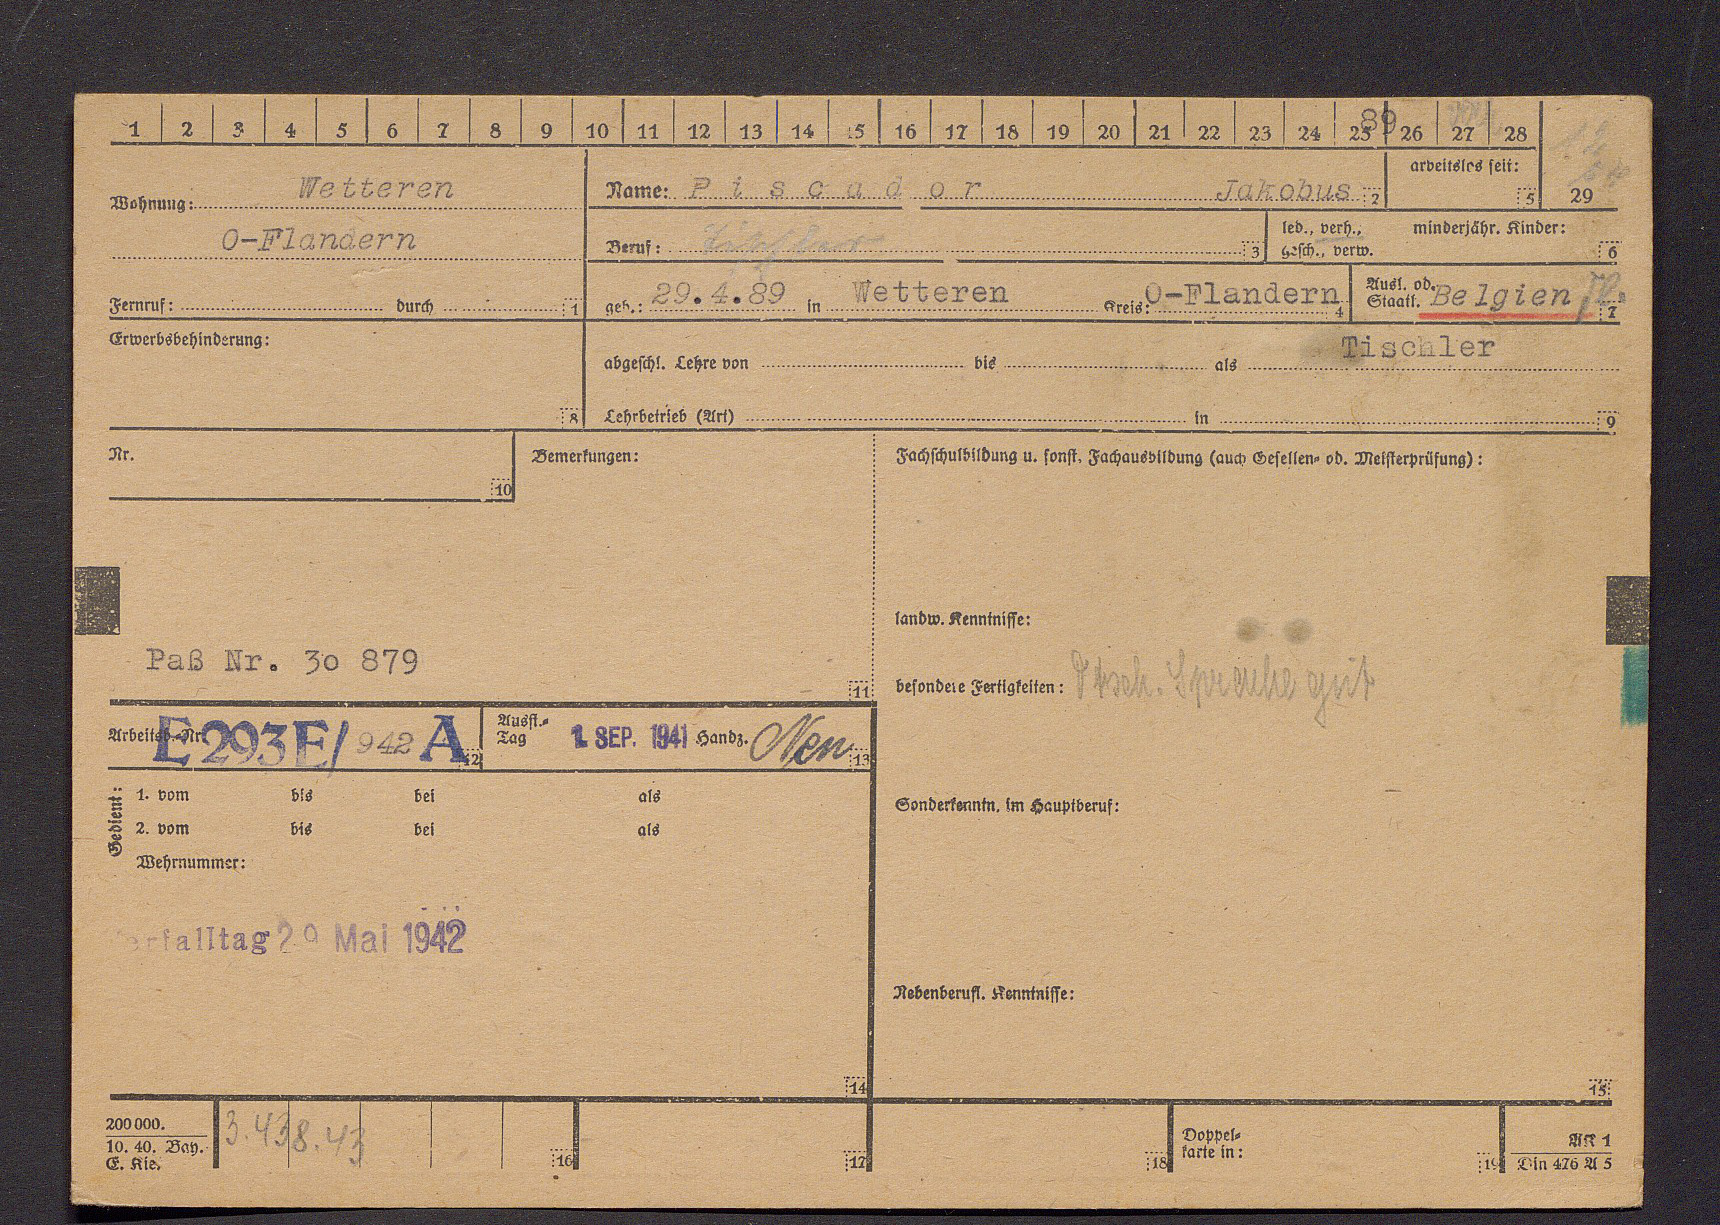 1 2 3 4 5 6 7 8 9 10 11 12 13 14 15 16 17 18 19 20 21 22 23 24 25 26 27 28 29
89
Wohnung: Wetteren
O-Flandern
Name: Piscador Jakobus 2
arbeitslos seit: 5
Beruf: Tischler 3
led., verh., gesch., verw.
minderjähr. Kinder: 6
Fernruf: durch 1
geb.: 29.4.89 in Wetteren Kreis: O-Flandern 4
Ausl. od. Staatl. Belgien 7
Erwerbsbehinderung: 8
abgeschl. Lehre von bis als Tischler
Lehrbetrieb (Art) in 9
Nr. 10
Bemerkungen:
Paß Nr. 30 879
11
Fachschulbildung u. sonst. Fachausbildung (auch Gesellen- od. Meisterprüfung):
landw. Kenntnisse:
besondere Fertigkeiten: Dtsch. Sprache gut
Arbeitsb.-Nr. E 293 E/ 942 A 12
Ausst.-Tag 1. SEP. 1941 Handz. Nen 13
Gedient:
1. vom bis bei als
2. vom bis bei als
Wehrnummer:
erfalltag 29 Mai 1942
14
Sonderkenntn. im Hauptberuf:
Nebenberufl. Kenntnisse:
15
200 000.
10. 40. Bay.
E. Kie.
3.438.43
16
17
18
Doppelkarte in: 19
AK 1
Din 476 A 5